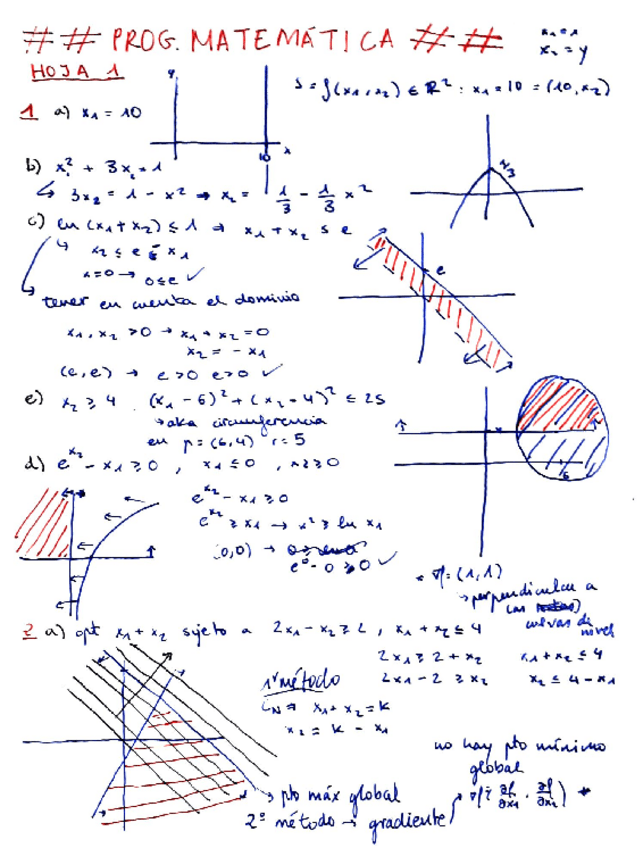 ## PROG. MATEMÁTICA ##
x₁ = 1
x₂ = y
HOJA 1
S = {(x₁, x₂) ∈ ℝ² : x₁ = 10 = (10, x₂)
1 a) x₁ = 10
y
x
10
b) x² + 3x₂ = 1
↳ 3x₂ = 1 - x² → x₂ = 1/3 - 1/3 x²
1/3
c) ln (x₁ + x₂) ≤ 1 → x₁ + x₂ ≤ e
x₂ ≤ e - x₁
x = 0 → 0 ≤ e ✓
e
tener en cuenta el dominio
x₁, x₂ > 0 → x₁ + x₂ = 0
x₂ = - x₁
(e, e) → e > 0 e > 0 ✓
e) x₂ ≥ 4 (x₁ - 6)² + (x₂ - 4)² ≤ 25
→ aka circunferencia
en p = (6,4) r = 5
6
d) e^x₂ - x₁ ≥ 0 , x₁ ≤ 0 ,
e^x₂ - x₁ ≥ 0
e^x₂ ≥ x₁ → x² ≥ ln x₁
(0,0) →
e⁰ - 0 ≥ 0 ✓
* ∇f = (1,1)
→ perpendicular a
las
curvas de nivel
2 a) opt x₁ + x₂ sujeto a 2x₁ - x₂ ≥ 2 , x₁ + x₂ ≤ 4
2x₁ ≥ 2 + x₂ x₁ + x₂ ≤ 4
2x₁ - 2 ≥ x₂ x₂ ≤ 4 - x₁
1º método
x₁ + x₂ = k
x₂ = k - x₁
no hay pto mínimo
global
→ pto máx global
2º método → gradiente
∇f = (∂f/∂x₁, ∂f/∂x₂) *